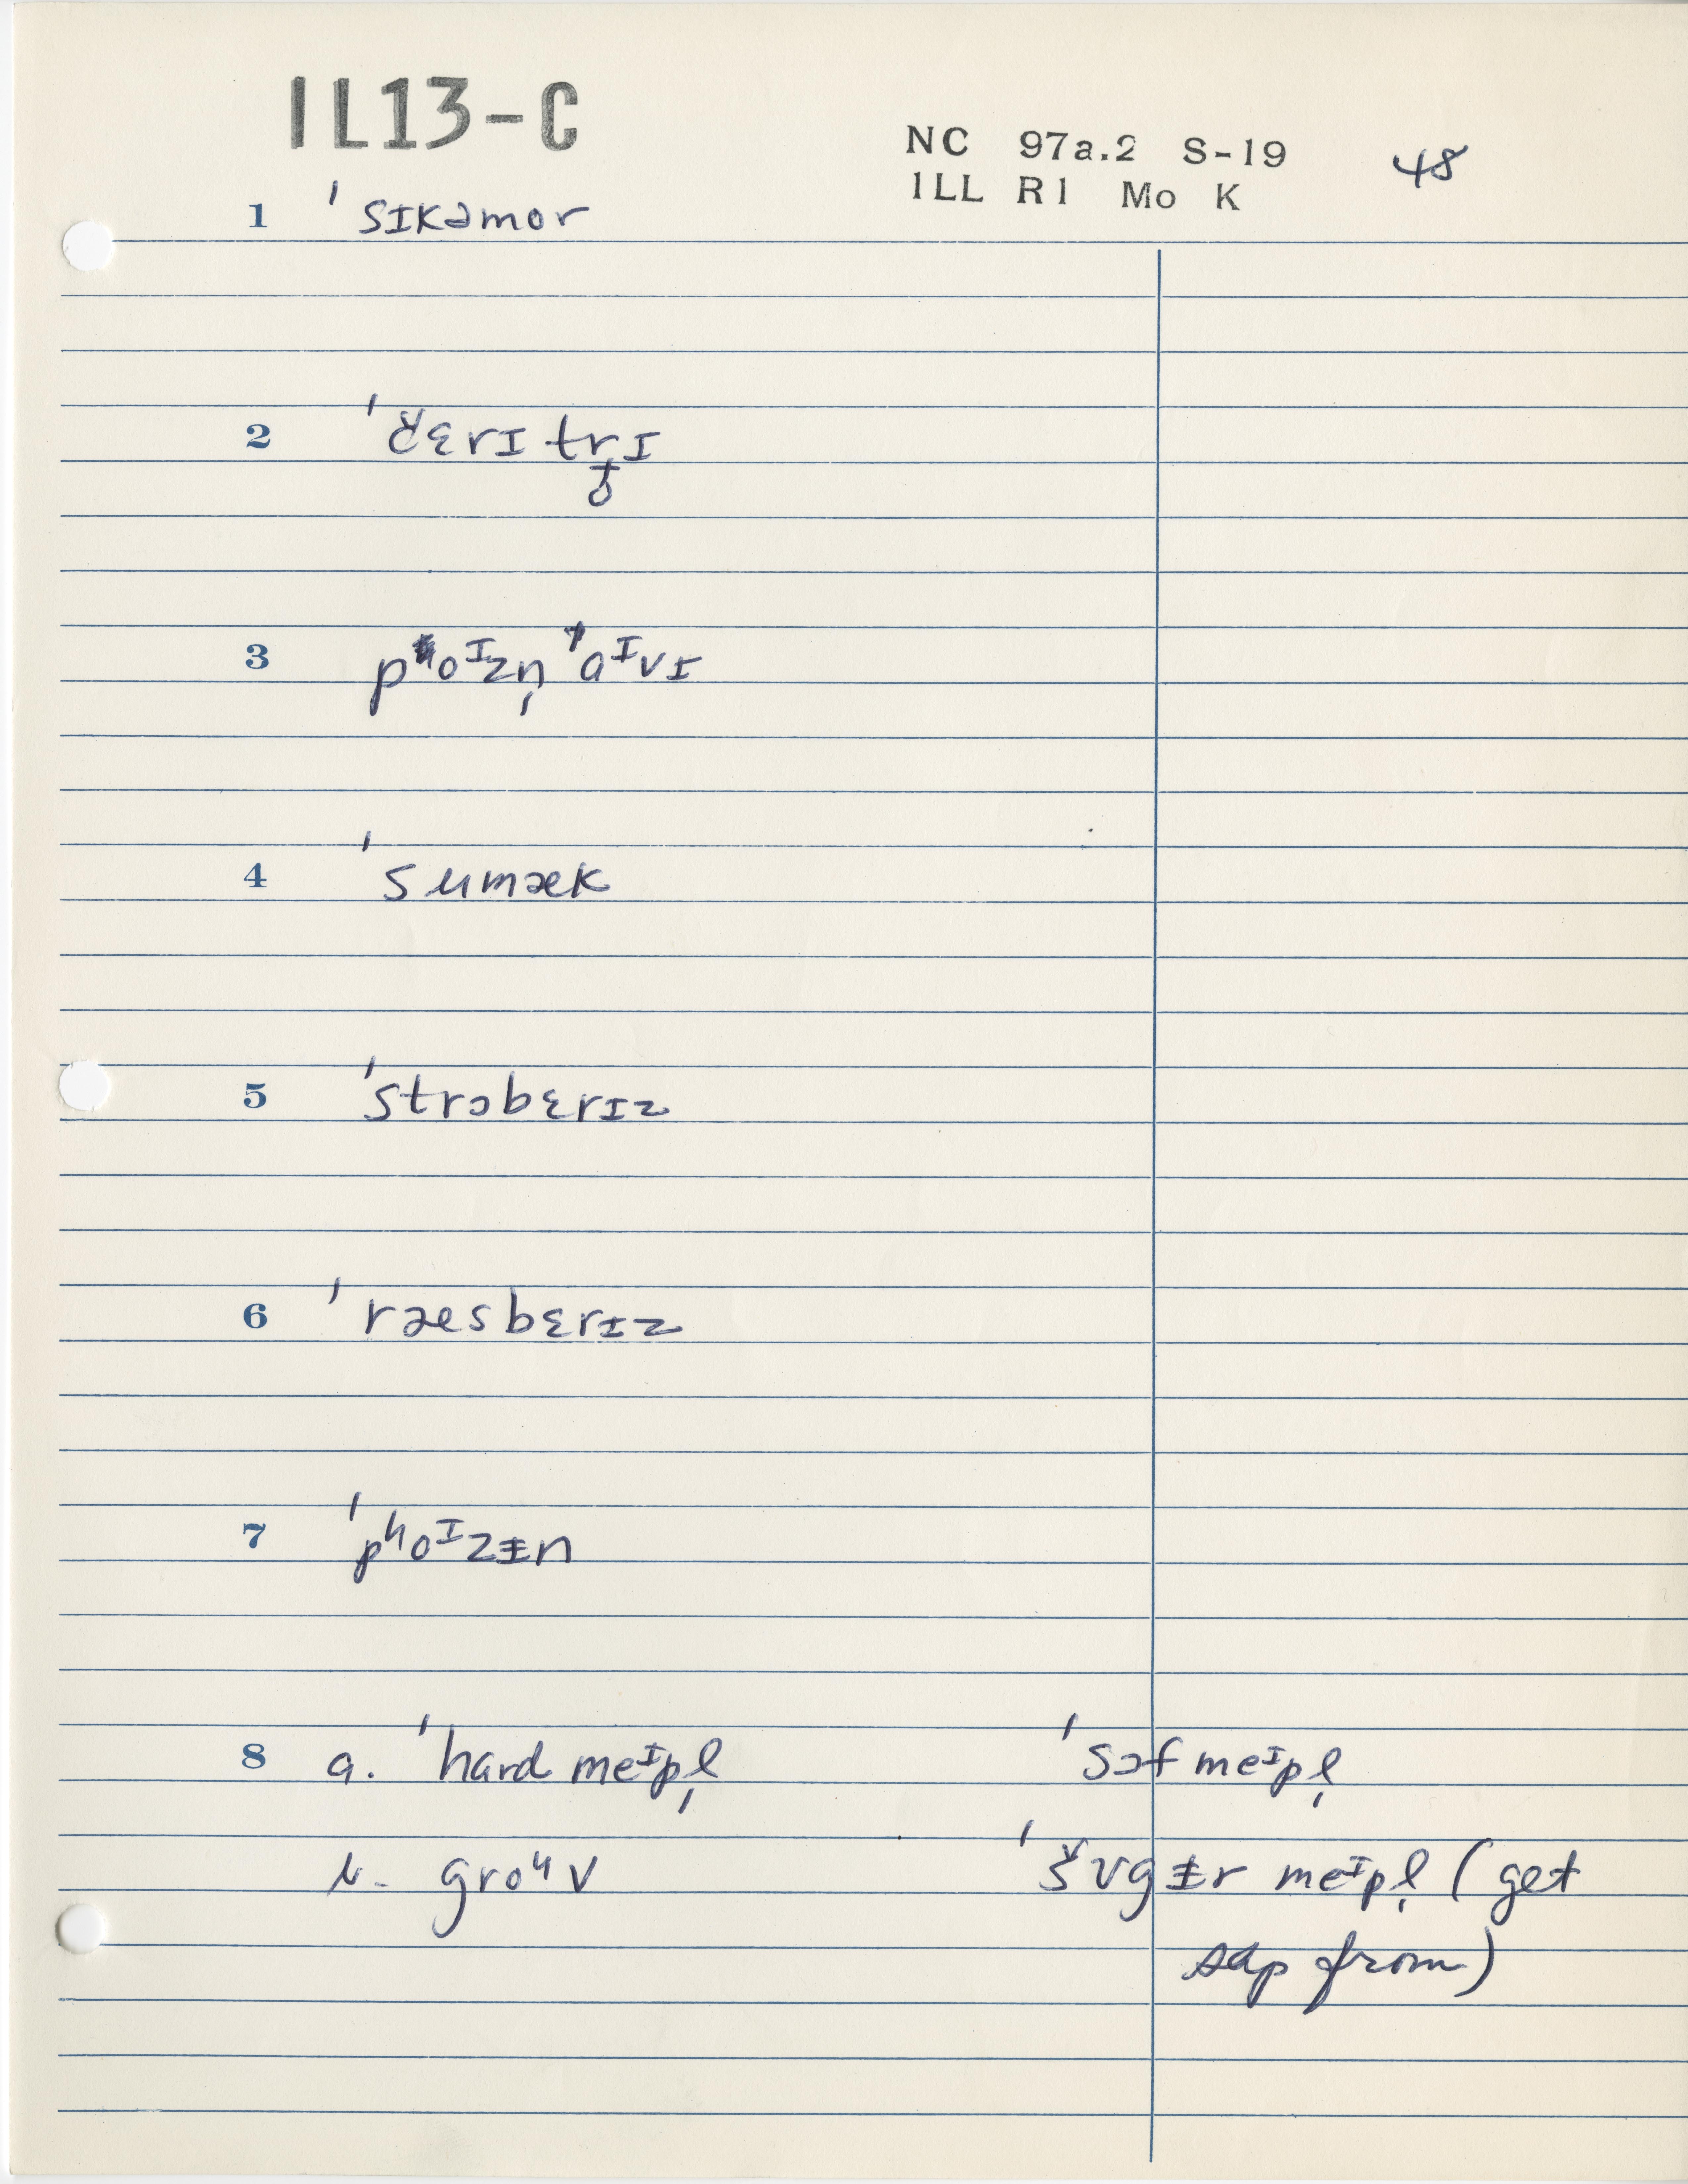 IL13-C
NC 97a.2 S-19 48
ILL R1 Mo K
1 ˈsɪkəmor
2 ˈčɛrɪ tr̥ɪ
3 pʰoᶦzn̩ ˈaᶦvɪ
4 ˈsumæk
5 ˈstrɔbɛrɪz
6 ˈræsbɛrɪz
7 ˈpʰoᶦzɨn
8 a. ˈhard meᶦpl̩ ˈsɔf meᶦpl̩
b. groᶸv ˈšʊgɨr meᶦpl̩ (get
sap from)